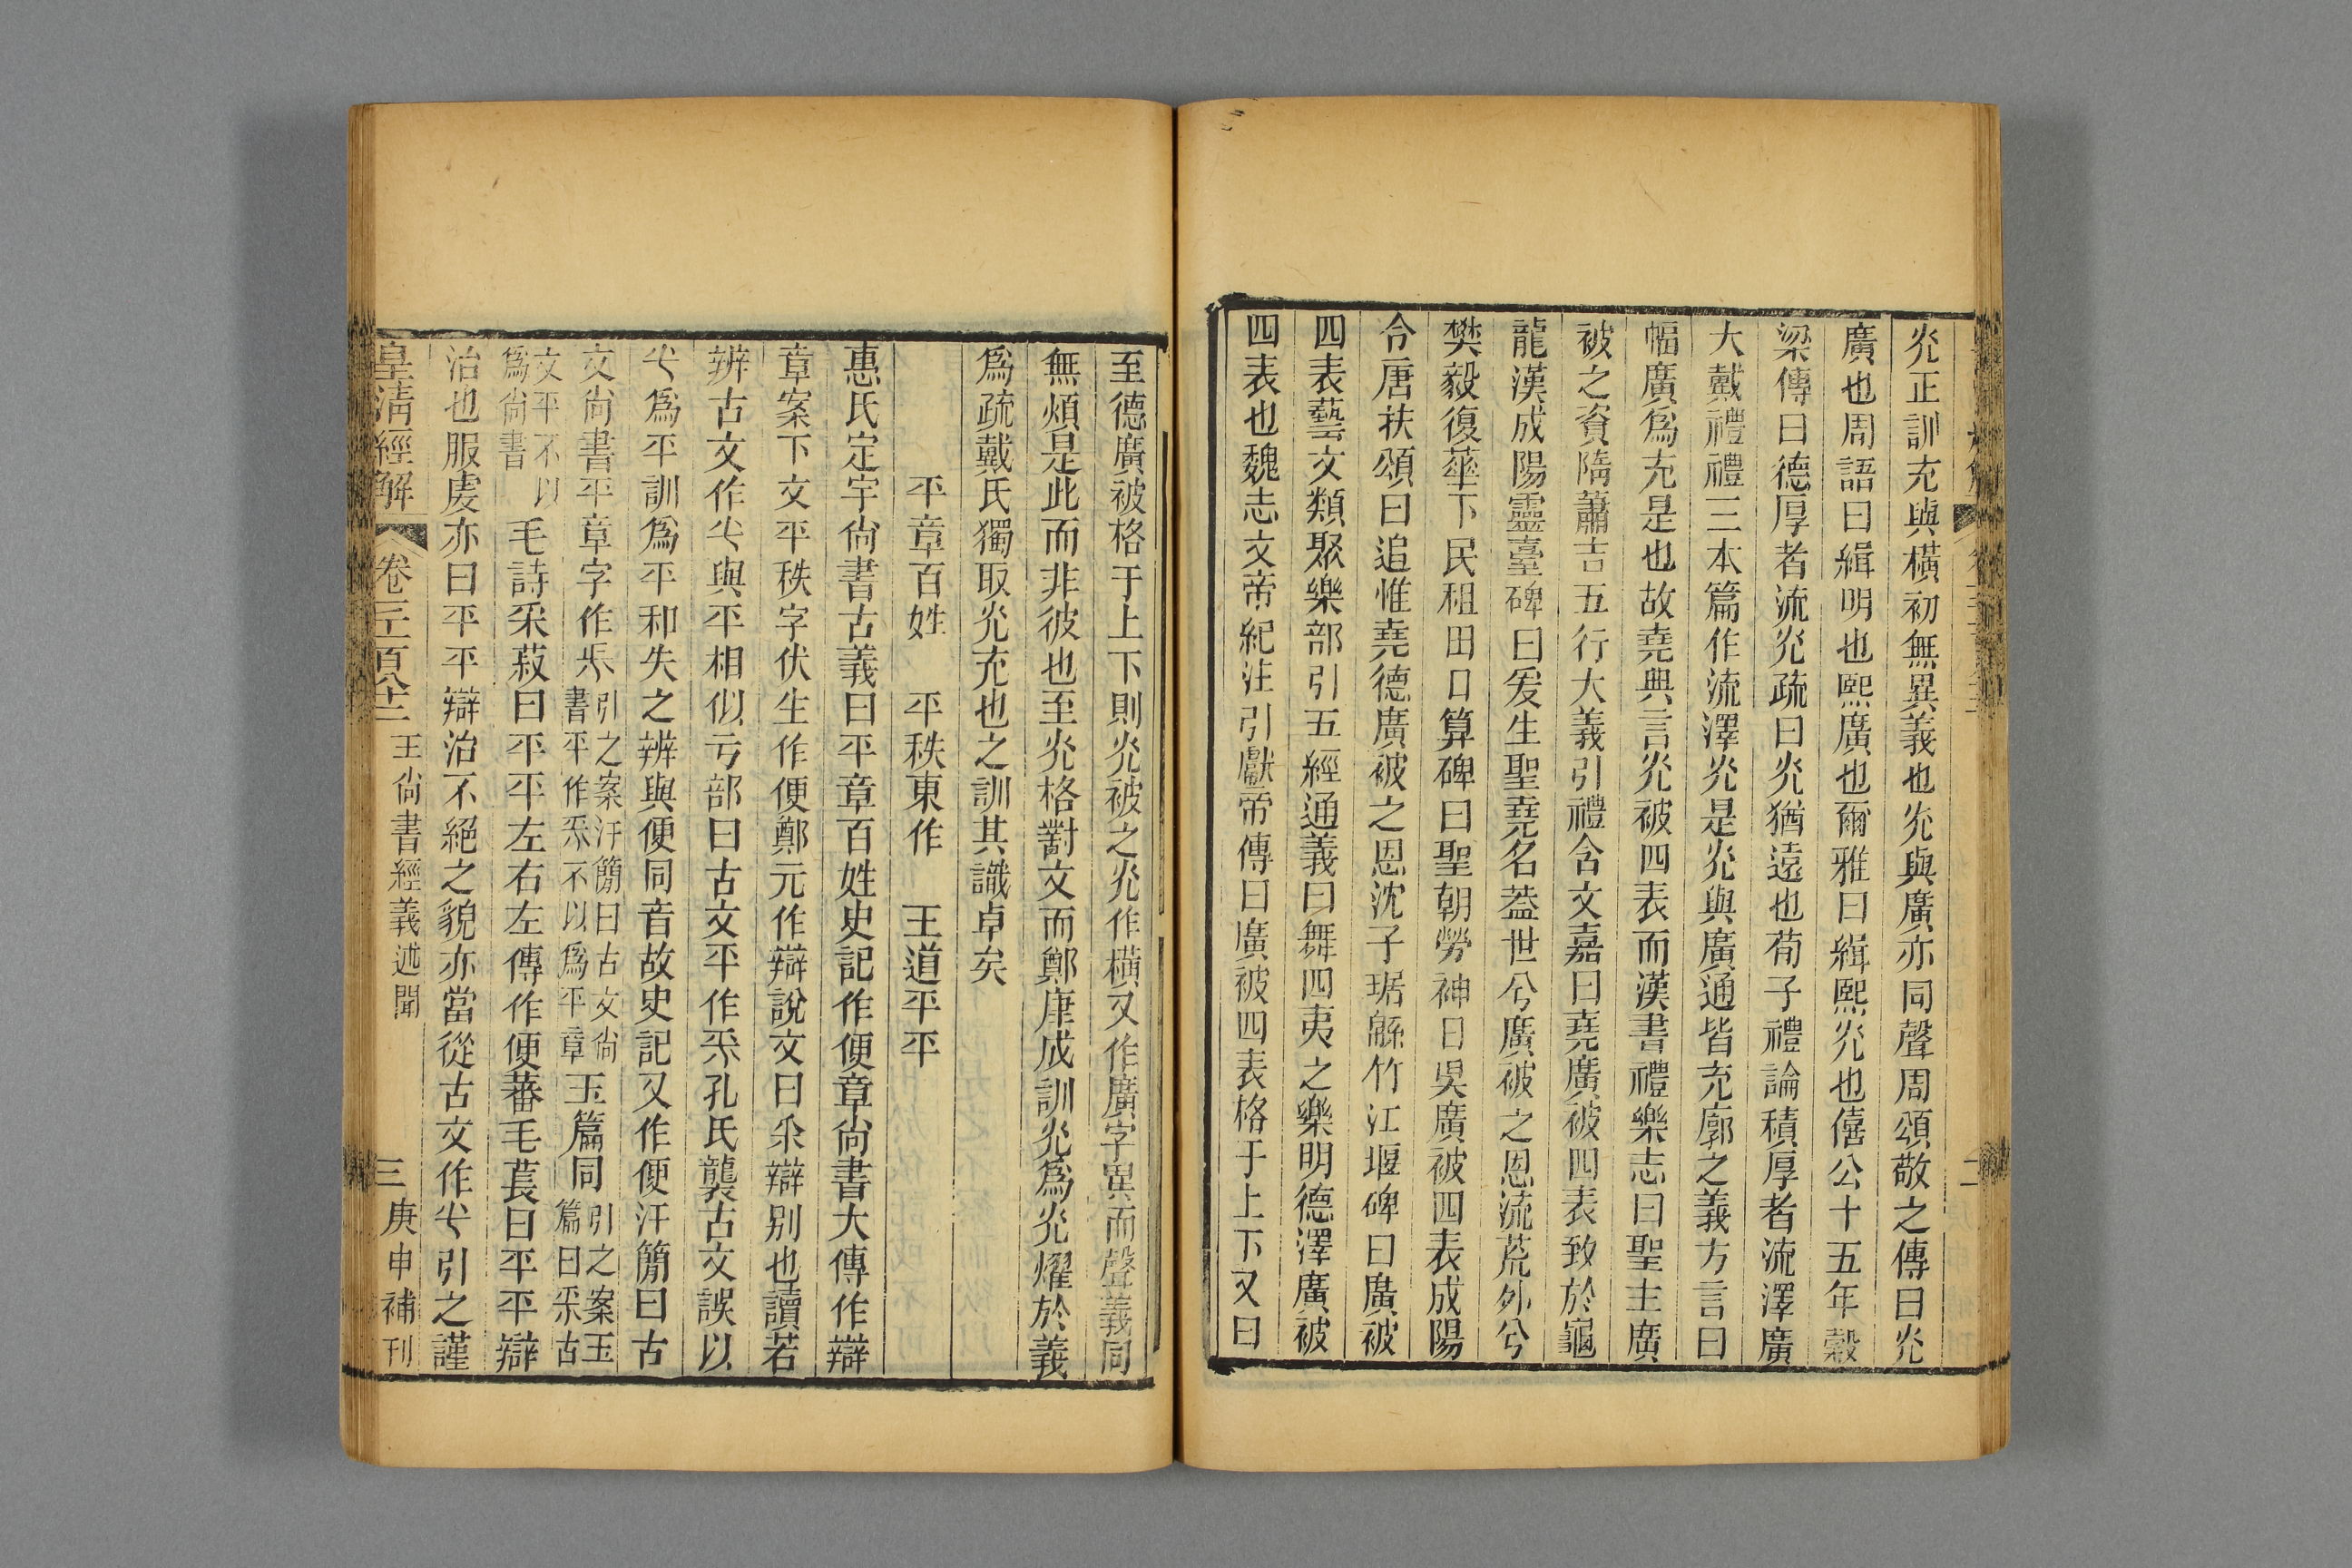 灮正訓充與橫初無異義也灮與廣亦同聲周頌敬之傳曰灮
廣也周語曰緝明也熙廣也爾雅曰緝熙灮也僖公十五年穀
梁傳曰德厚者流灮疏曰灮猶遠也荀子禮論積厚者流澤廣
大戴禮禮三本篇作流澤灮是灮與廣通皆充廓之義方言曰
幅廣爲充是也故堯典言灮被四表而漢書禮樂志曰聖主廣
被之資隋蕭吉五行大義引禮含文嘉曰堯廣被四表致於龜
龍漢成陽靈臺碑曰爰生聖堯名葢世兮廣被之恩流荒外兮
樊毅復華下民租田口算碑曰聖朝勞神日昃廣被四表成陽
令唐扶頌曰追惟堯德廣被之恩沈子琚緜竹江堰碑曰廣被
四表藝文類聚樂部引五經通義曰舞四夷之樂明德澤廣被
四表也魏志文帝紀注引獻帝傳曰廣被四表格于上下又曰
二
至德廣被格于上下則灮被之灮作橫又作廣字異而聲義同
無煩是此而非彼也至灮格對文而鄭康成訓灮爲灮燿於義
爲疏戴氏獨取灮充也之訓其識卓矣
平章百姓　平秩東作　王道平平
惠氏定宇尙書古義曰平章百姓史記作便章尙書大傳作辯
章案下文平秩字伏生作便鄭元作辯說文曰釆辯別也讀若
辨古文作𠂒與平相似亏部曰古文平作𠀘孔氏襲古文誤以
𠂒爲平訓爲平和失之辨與便同音故史記又作便汗簡曰古
文尙書平章字作𠀘引之案汗簡曰古文尙書平作𠀘不以爲平章玉篇同引之案玉篇曰𠀘古
文平不以爲尙書毛詩采菽曰平平左右左傳作便蕃毛萇曰平平辯
治也服虔亦曰平平辯治不絕之貌亦當從古文作𠂒引之謹
皇清經解
王尙書經義述聞
三
庚申補刊